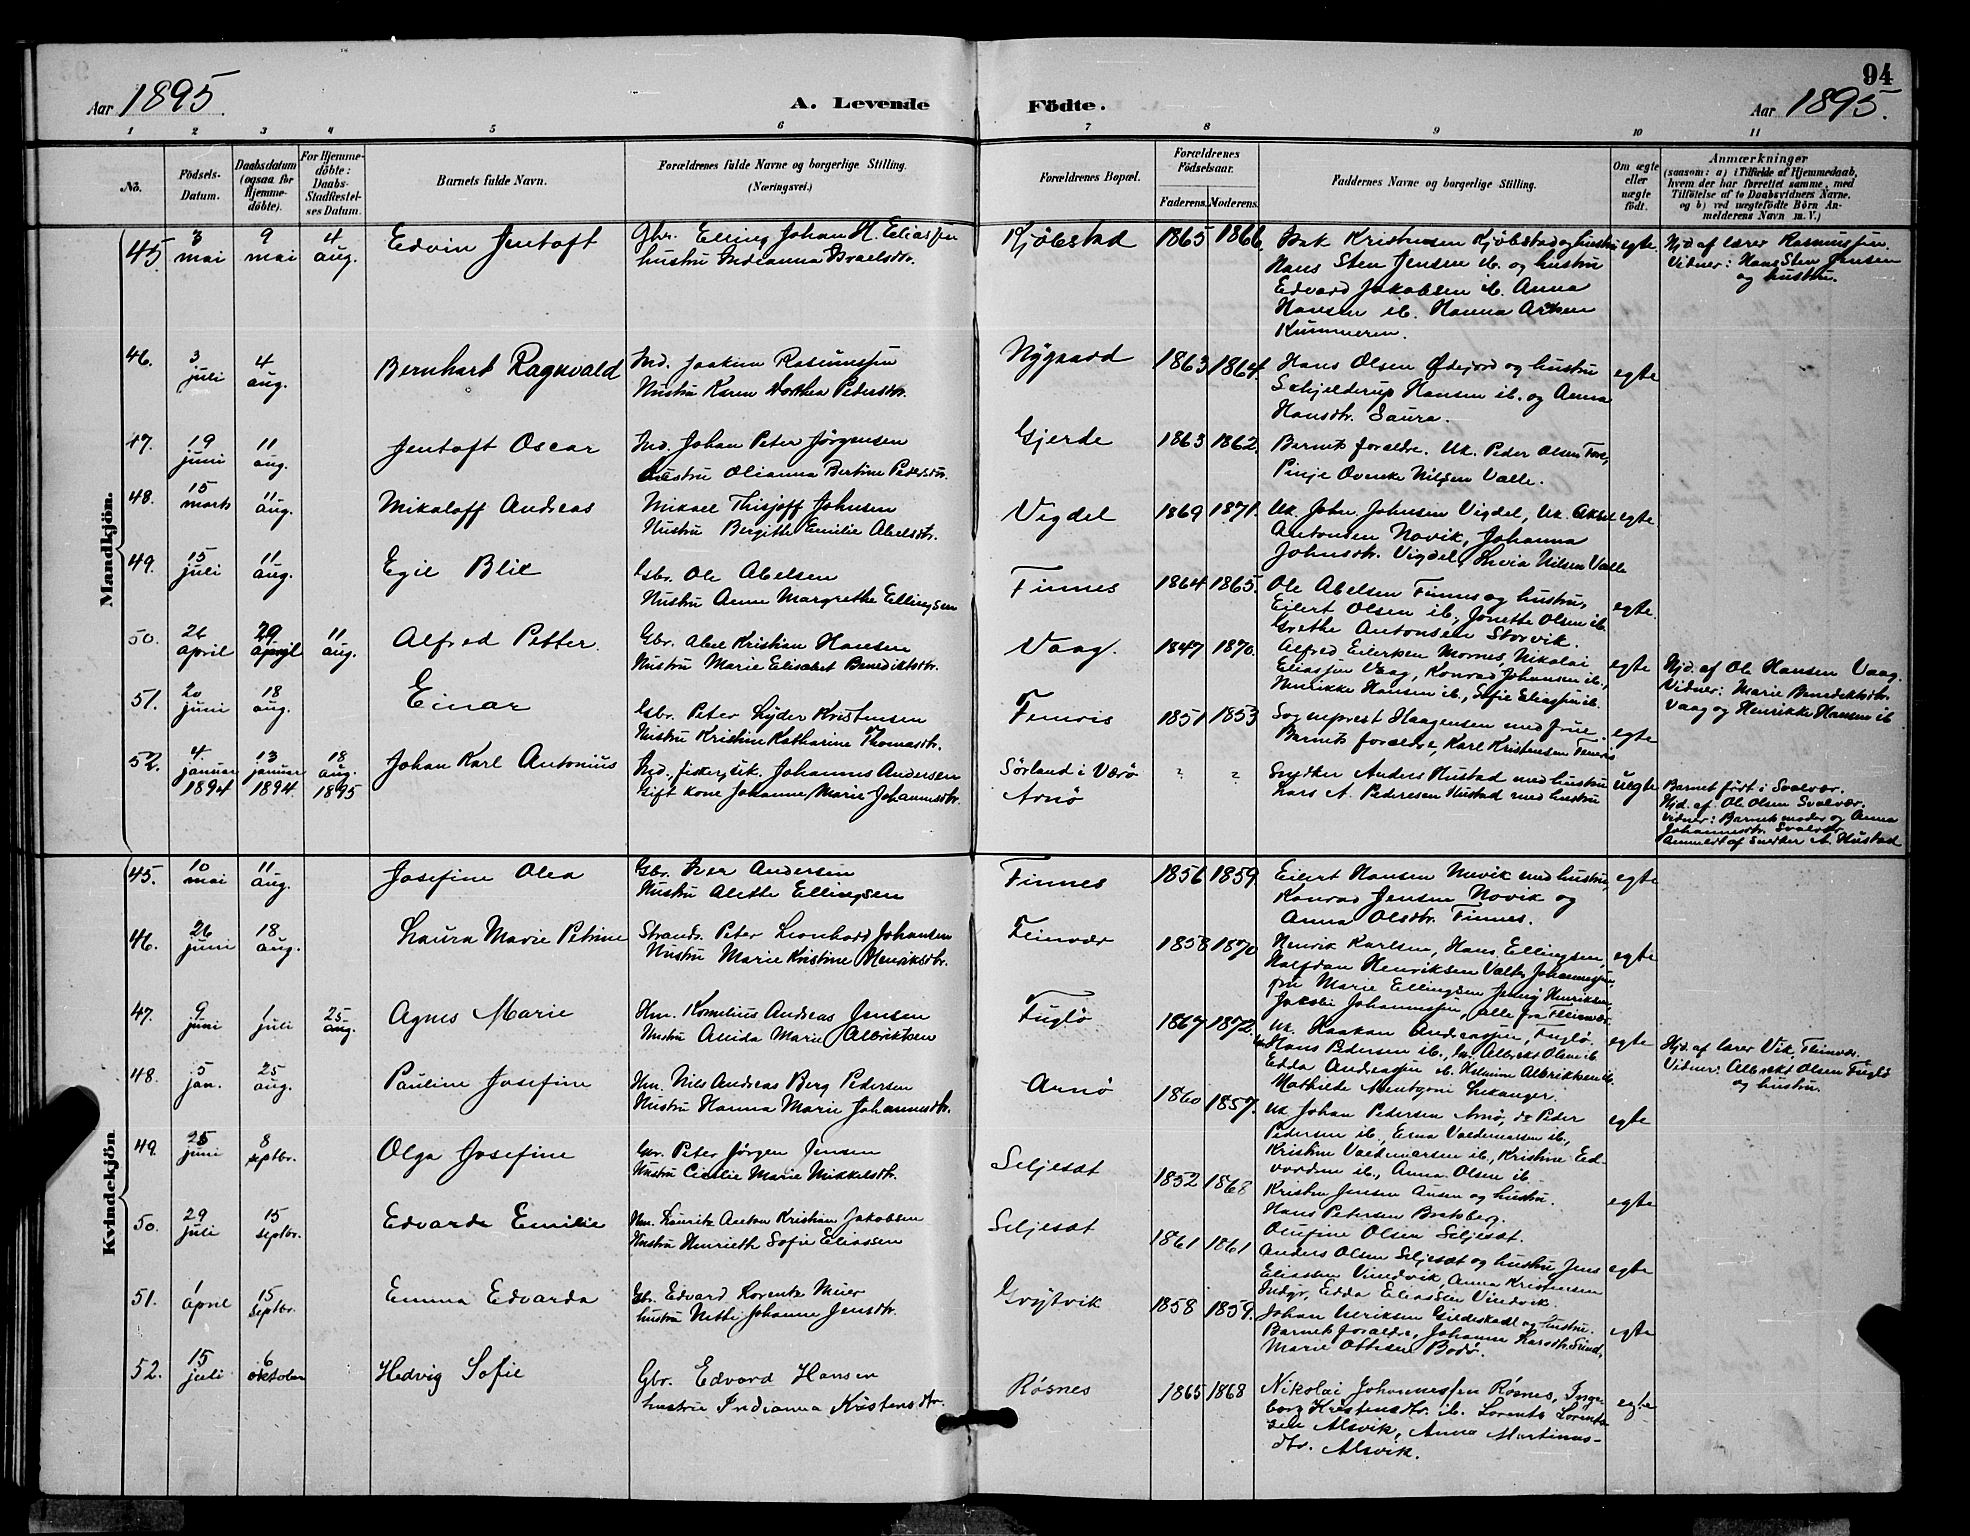 94
Aar 1895
A. Levende Födte.
Aar 1895.
1 2 3 4 5 6 7 8 9 10 11
No.
Födsels-Datum.
Daabsdatum (ogsaa for Hjemme-döbte).
For Hjemme-döbte: Daabs-Stadfæstelses Datum.
Barnets fulde Navn.
Forældrenes fulde Navne og borgerlige Stilling.
(Næringsvei.)
Forældrenes Bopæl.
Forældrenes Födselsaar.
Faderens. Moderens.
Faddernes Navne og borgerlige Stilling.
Om ægte eller uægte födt.
Anmærkninger
(saasom: a) i Tilfælde af Hjemmedaab,
hvem der har forrettet samme, med
Tilföielse af to Daabsvidners Navne,
og b) ved uægtefödte Börn An-
melderens Navn m. V.)
Mandkjön.
45. 3 mai 9 mai 4 aug. Edvin Jentoft
Gbr. Elling Johan H. Eliassen
hustru Indianna Israelsdtr.
Kjöbstad 1865 1866
Kristensen Kjöbstad og hustru
Hans Sten Jensen ib. og hustru
Edvard Jakobsen ib. Anna
Hansen ib. Hanna
egte.
Hjd. af lærer Rasmussen.
Vidner: Hans Sten Jensen
og hustru.
46. 3 juli 4 aug. Bernhart Ragnvald
Ind. Joakim Rasmussen
Hustru Karen Dorthea Pedersdtr.
Nygaard 1863 1864.
Hans Olsen Ödejord og hustru
Schjelderup Hansen ib. og Anna
Hansdtr. Saura.
egte
47. 19 juni 11 aug. Jentoft Oscar
Ind. Johan Peter Jørgensen
Hustru Olianna Bertine Pedersdtr.
Gjerde 1863 1862.
Barnets forældre. Uk. Peder Olsen
Pige Ovenke Nilsen Valle.
48. 15 marts 11 aug. Mikaloff Andreas
Mikael Johnsen
Hustru Bergitte Emilie Abelsdtr.
Vigdel 1869 1871.
Uk. John Johnsen Vigdel, Uk. Aksel
Antonsen Novik, Johanna
Johnsdtr. Vigdel, Livia Nilsen Valle
egte
49. 15 juli 11 aug. Egil Blix
Gbr. Ole Abelsen
Hustru Anne Margrethe Ellingsen
Finnes 1864 1865.
Ole Abelsen Finnes og hustru,
Eilert Olsen ib., Jonette Olsen ib.
Grethe Antonsen Storvik.
egte.
50. 26 april 29 april 11 aug. Alfred Petter.
Gbr. Abel Kristian Hansen
Hustru Marie Elisabet Benediktsdtr.
Vaag. 1847 1870.
Alfred Eilertsen Mornes, Nikolai
Eliassen Vaag, Konrad Johansen ib.,
Henrikke Hansen ib., Sofie Eliassen ib.
egte
Hjd. af Ole Hansen Vaag.
Vidner: Marie Benediktsdtr.
Vaag og Henrikke Hansen ib
51. 20 juni 18 aug. Einar
Gbr. Peter Lyder Kristensen
Hustru Kristine Katharine Thomasdtr.
Femris 1851 1853
Sogneprest Haagensen med frue.
Barnets forældre, Karl Kristensen Femris
egte
52. 4. januar 1894 13 januar 1894. 18 aug. 1895 Johan Karl Antonius
Ind. fisker, Johannes Andersen
Gift kone Johanne Marie Johannesdtr.
Sörland i Værö
Arnö
? ?
Snedker Anders Hustad med hustru
Lars A. Pedersen Hustad med hustru
uegte
Barnet födt i Svolvær.
Hjd. af Ole Olsen Svolvær.
Vidner: Barnets moder og Anna
Johannesdtr. Svolvær
Anmeldt af Snedker A. Hustad
Kvindekjön
45. 10 mai 11 aug. Josefine Olea
Gbr. Iver Andersen
Hustru Alette Ellingsen
Finnes 1856 1859
Eilert Hansen med hustru
Konrad Jensen Novik og
Anna Olsdtr. Finnes.
egte
46. 26 juni 18 aug. Laura Marie Petrine
Strands. Peter Leonhard Johansen
Hustru Marie Kristine Henriksdtr.
Fleinvær 1858 1870
Henrik Karlsen, Hans Ellingsen,
Halfdan Henriksen Johannessen,
Marie Ellingsen Jenny Henriksen
Johannessen, alle fra Fleinvær
egte
47. 9 juni 1 juli 25 aug. Agnes Marie
Hm. Kornelius Andreas Jensen
Hustru Alida Marie Albriktsen
Fuglö 1867 1872.
Uk. Haakon Andreassen, Fuglö.
Hans Pedersen ib., Albrekt Olsen ib
Edda Andreassen ib. Helmine Albriktsen ib.
Mathilde
egte
Hjd. af lærer Vik, Fleinvær.
Vidner: Albrekt Olsen Fuglö
og hustru.
48. 5 jan. 25 aug. Pauline Josefine
Hm. Nils Andreas Berg Pedersen
Hustru Hanna Marie Johannesdtr.
Arnö 1860 1857.
Uk. Johan Pedersen Arnö, do Peder
Pedersen ib., Erna Valdemarsen ib.,
Kristine Valdemarsen ib., Kristine Ed-
vardsen ib., Anna Olsen ib.
egte
49. 25 juni 8 septbr. Olga Josefine
Gbr. Peter Jörgen Jensen
Hustru Cecilie Marie Mikkelsdtr.
Seljesæt 1852 1868
Kristen Jensen Ausen og hustru.
Hans Petersen Bratsberg.
Olufine Olsen Seljesæt.
egte
50. 29 juli 15 septbr. Edvarda Emilie
Hm. Lauritz Anton Kristian Jakobsen
Hustru Henrieth Sofie Eliassen
Seljesæt 1861 1861
Anders Olsen Seljesæt og hustru, Jens
Eliassen Vindvik, Anna Kristensen
Indyr, Edda Eliassen Vindvik.
egte
51. 1 april 15 septbr. Emma Edvarda
Gbr. Edvard Lorents Meier
hustru Netti Johanne Jensdtr.
Gröjtvik 1858 1859.
Johan Ulriksen Gildeskaal og hustru.
Barnets forældre, Johanna Larsdtr. Sund,
Marie Ottesen Bodö.
egte
52. 15 juli 6 oktober Hedvig Sofie
Gbr. Edvard Hansen
hustru Indianna Kristensdtr.
Rösnes 1865 1868
Nikolai Johannessen Rösnes, Inge-
borg Kristensdtr. ib. Lorents Lorent-
sen Alsvik, Anna Martinus-
dtr. Alsvik.
egte